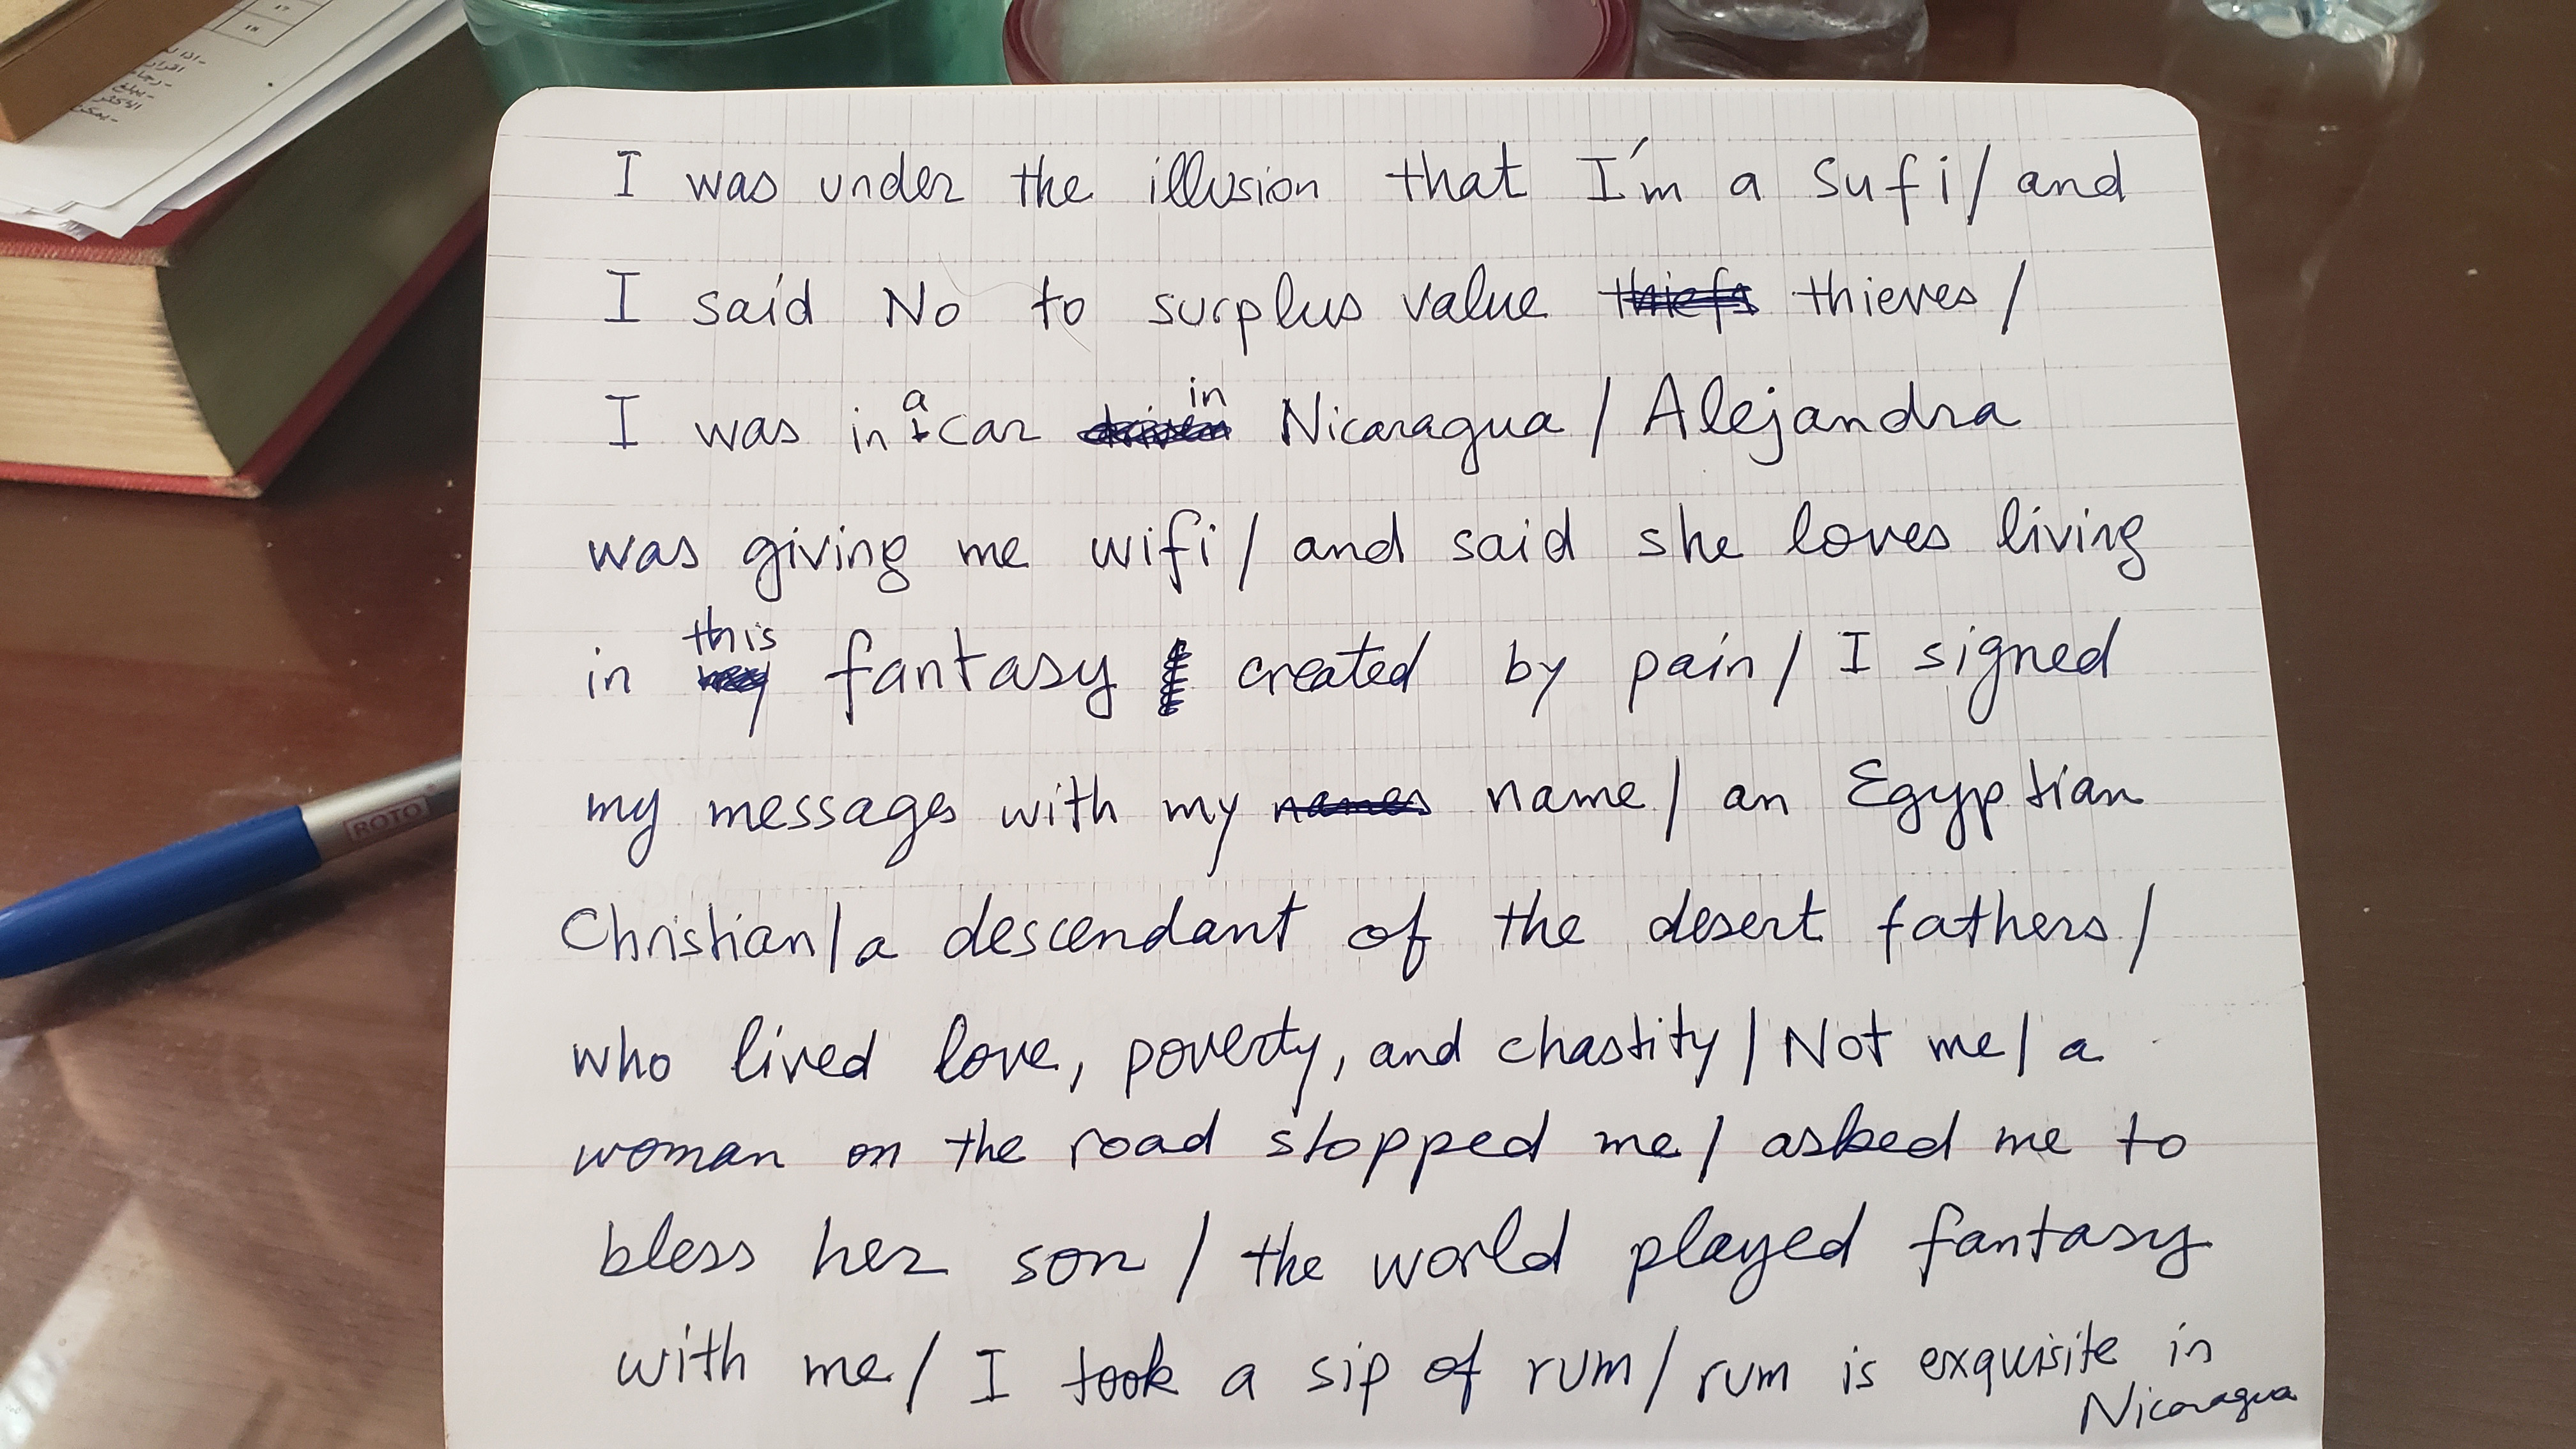 I was under the illusion that I'm a Sufi/ and
I said No to surplus value thiefs thieves /
I was in a car in Nicaragua / Alejandra
was giving me wifi/ and said she loves living
in this fantasy created by pain/ I signed
my messages with my names name/ an Egyptian
Christian/a descendant of the desert fathers/
who lived love, poverty, and chastity/ Not me/ a
woman on the road stopped me/ asked me to
bless her son / the world played fantasy
with me/ I took a sip of rum/ rum is exquisite in
Nicaragua
ROTO
١٧
١٨